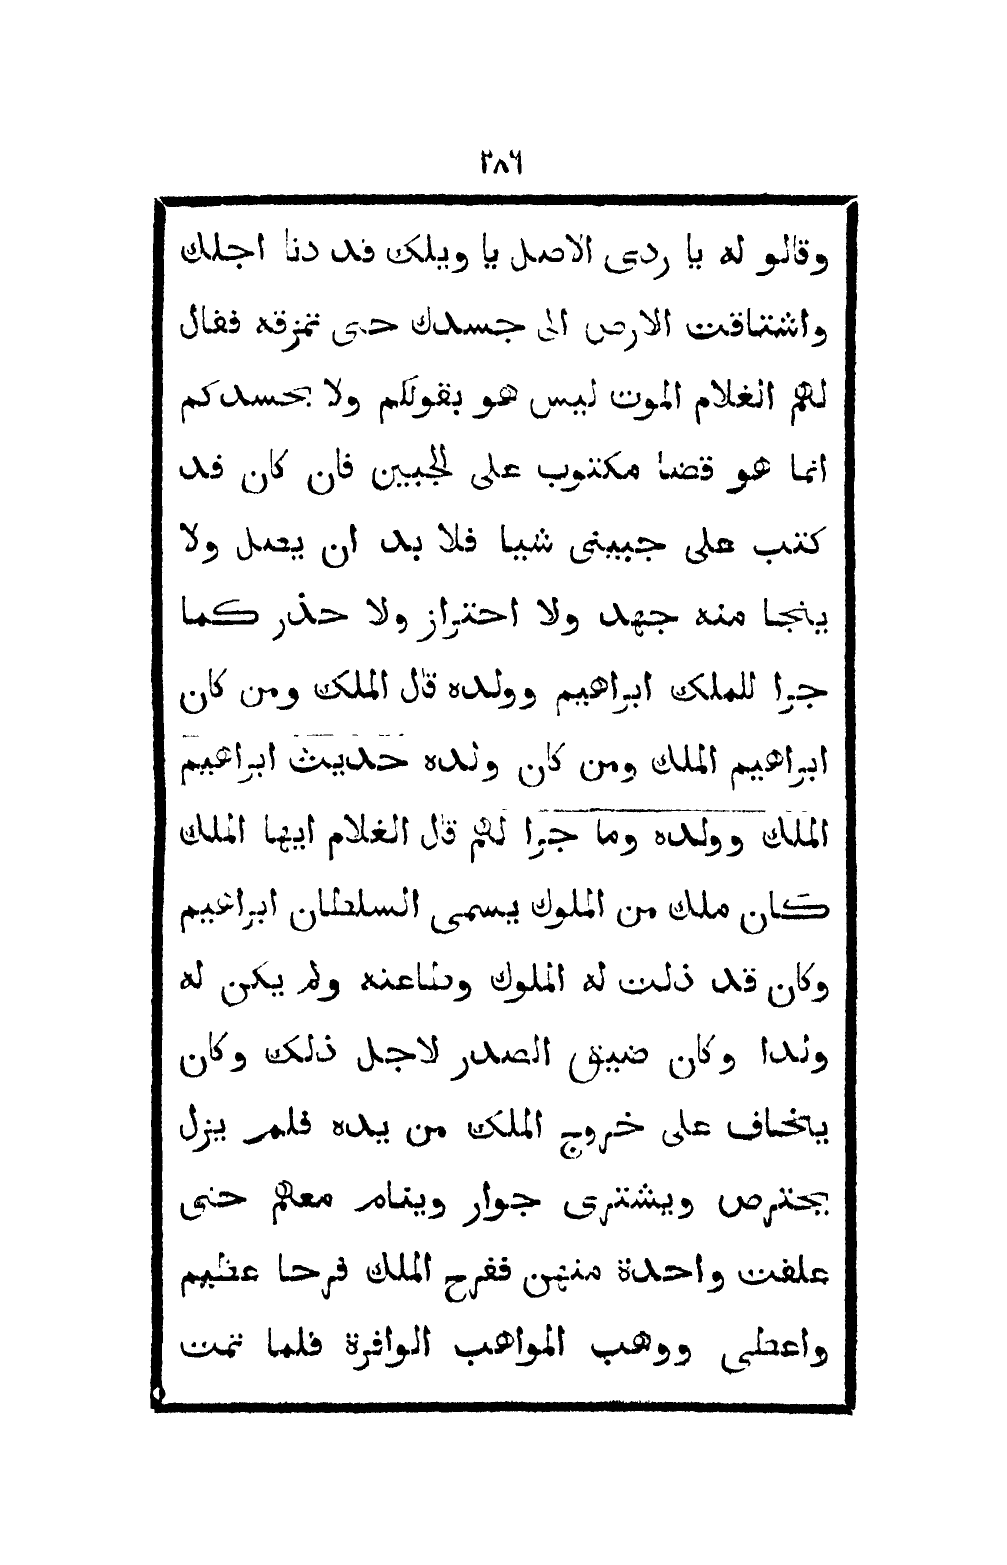 ٢٨٦
وقالو له يا ردى الاصل يا ويلك قد دنا اجلك
واشتاقت الارض الى جسدك حتى تمزقه فقال
لهم الغلام الموت ليس هو بقولكم ولا بحسدكم
انما هو قضا مكتوب على الجبين فان كان قد
كتب على جبينى شيا فلا بد ان يصل ولا
ينجا منه جهد ولا احتراز ولا حذر كما
جرا للملك ابراهيم وولده قال الملك ومن كان
ابراهيم الملك ومن كان ولده حديث ابراهيم
الملك وولده وما جرا لهم قال الغلام ايها الملك
كان ملك من الملوك يسمى السلطان ابراهيم
وكان قد ذلت له الملوك وطاعنه ولم يكن له
ولدا وكان ضيق الصدر لاجل ذلك وكان
يتخاف على خروج الملك من يده فلم يزل
يحترص ويشترى جوار وينام معهم حتى
علقت واحدة منهن ففرح الملك فرحا عظيم
واعطى ووهب المواهب الوافرة فلما تمت